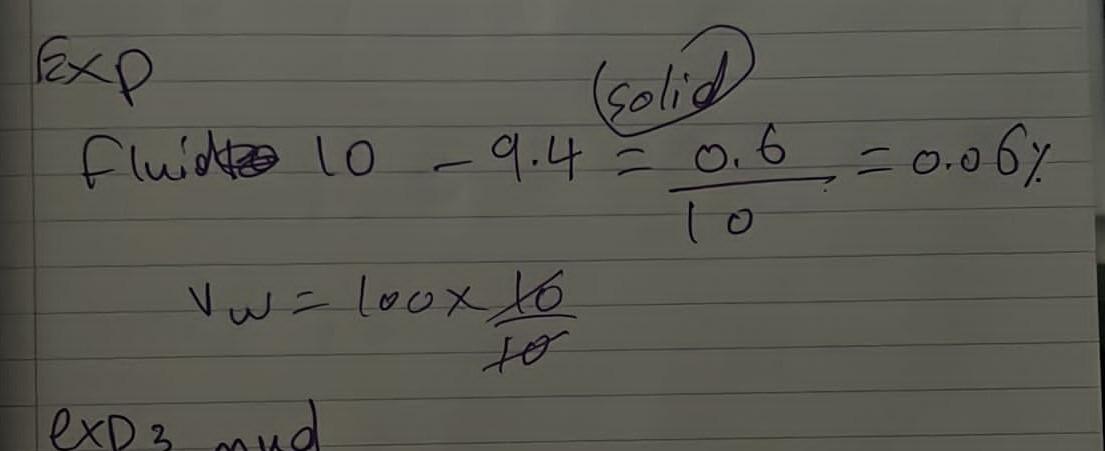 Exp
(solid)
fluid 10 - 9.4 = 0.6 / 10 = 0.06%
Vw = 100 x 10 / 10
exp3 mud